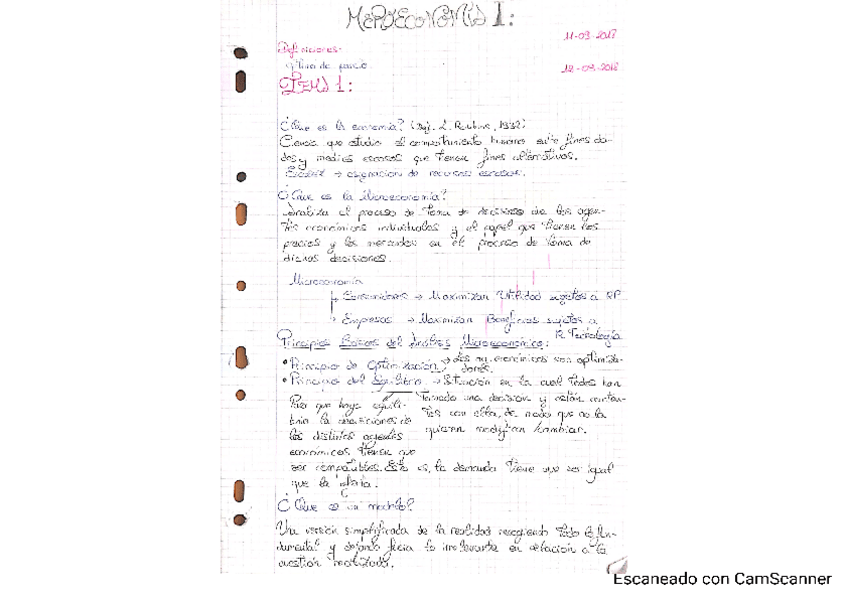 MICROECONOMÍA I:
11-09-2018
Definiciones.
12-09-2018
TEMA 1:
¿Que es la economía? (Def. L. Robbins, 1932)
Ciencia que estudia el comportamiento humano entre fines da-
dos y medios escasos que tienen fines alternativos.
Escasez → asignación de recursos escasos.
¿Que es la Microeconomía?
Analiza el proceso de toma de decisiones de los agen-
tes económicos individuales y el papel que tienen los
precios y los mercados en el proceso de toma de
dichas decisiones.
Microeconomía
→ Consumidores → Maximizan Utilidad sujetos a RP
→ Empresas → Maximizan Beneficios sujetos a
R. Tecnología
Principios Básicos del Análisis Microeconómico:
• Principio de Optimización → Los ag. económicos son optimiza-
dores.
• Principio del Equilibrio → Situación en la cual todos han
tomado una decisión y están conten-
tos con ella, de modo que no la
quieren modificar/cambiar.
Para que haya equili-
brio la de
los distintos agentes
económicos tienen que
ser compatibles. Esto es, la demanda tiene que ser igual
que la oferta.
¿Que es un modelo?
Una versión simplificada de la realidad recogiendo todo lo fun-
damental y dejando fuera lo irrelevante en relación a la
cuestión analizada.
Escaneado con CamScanner